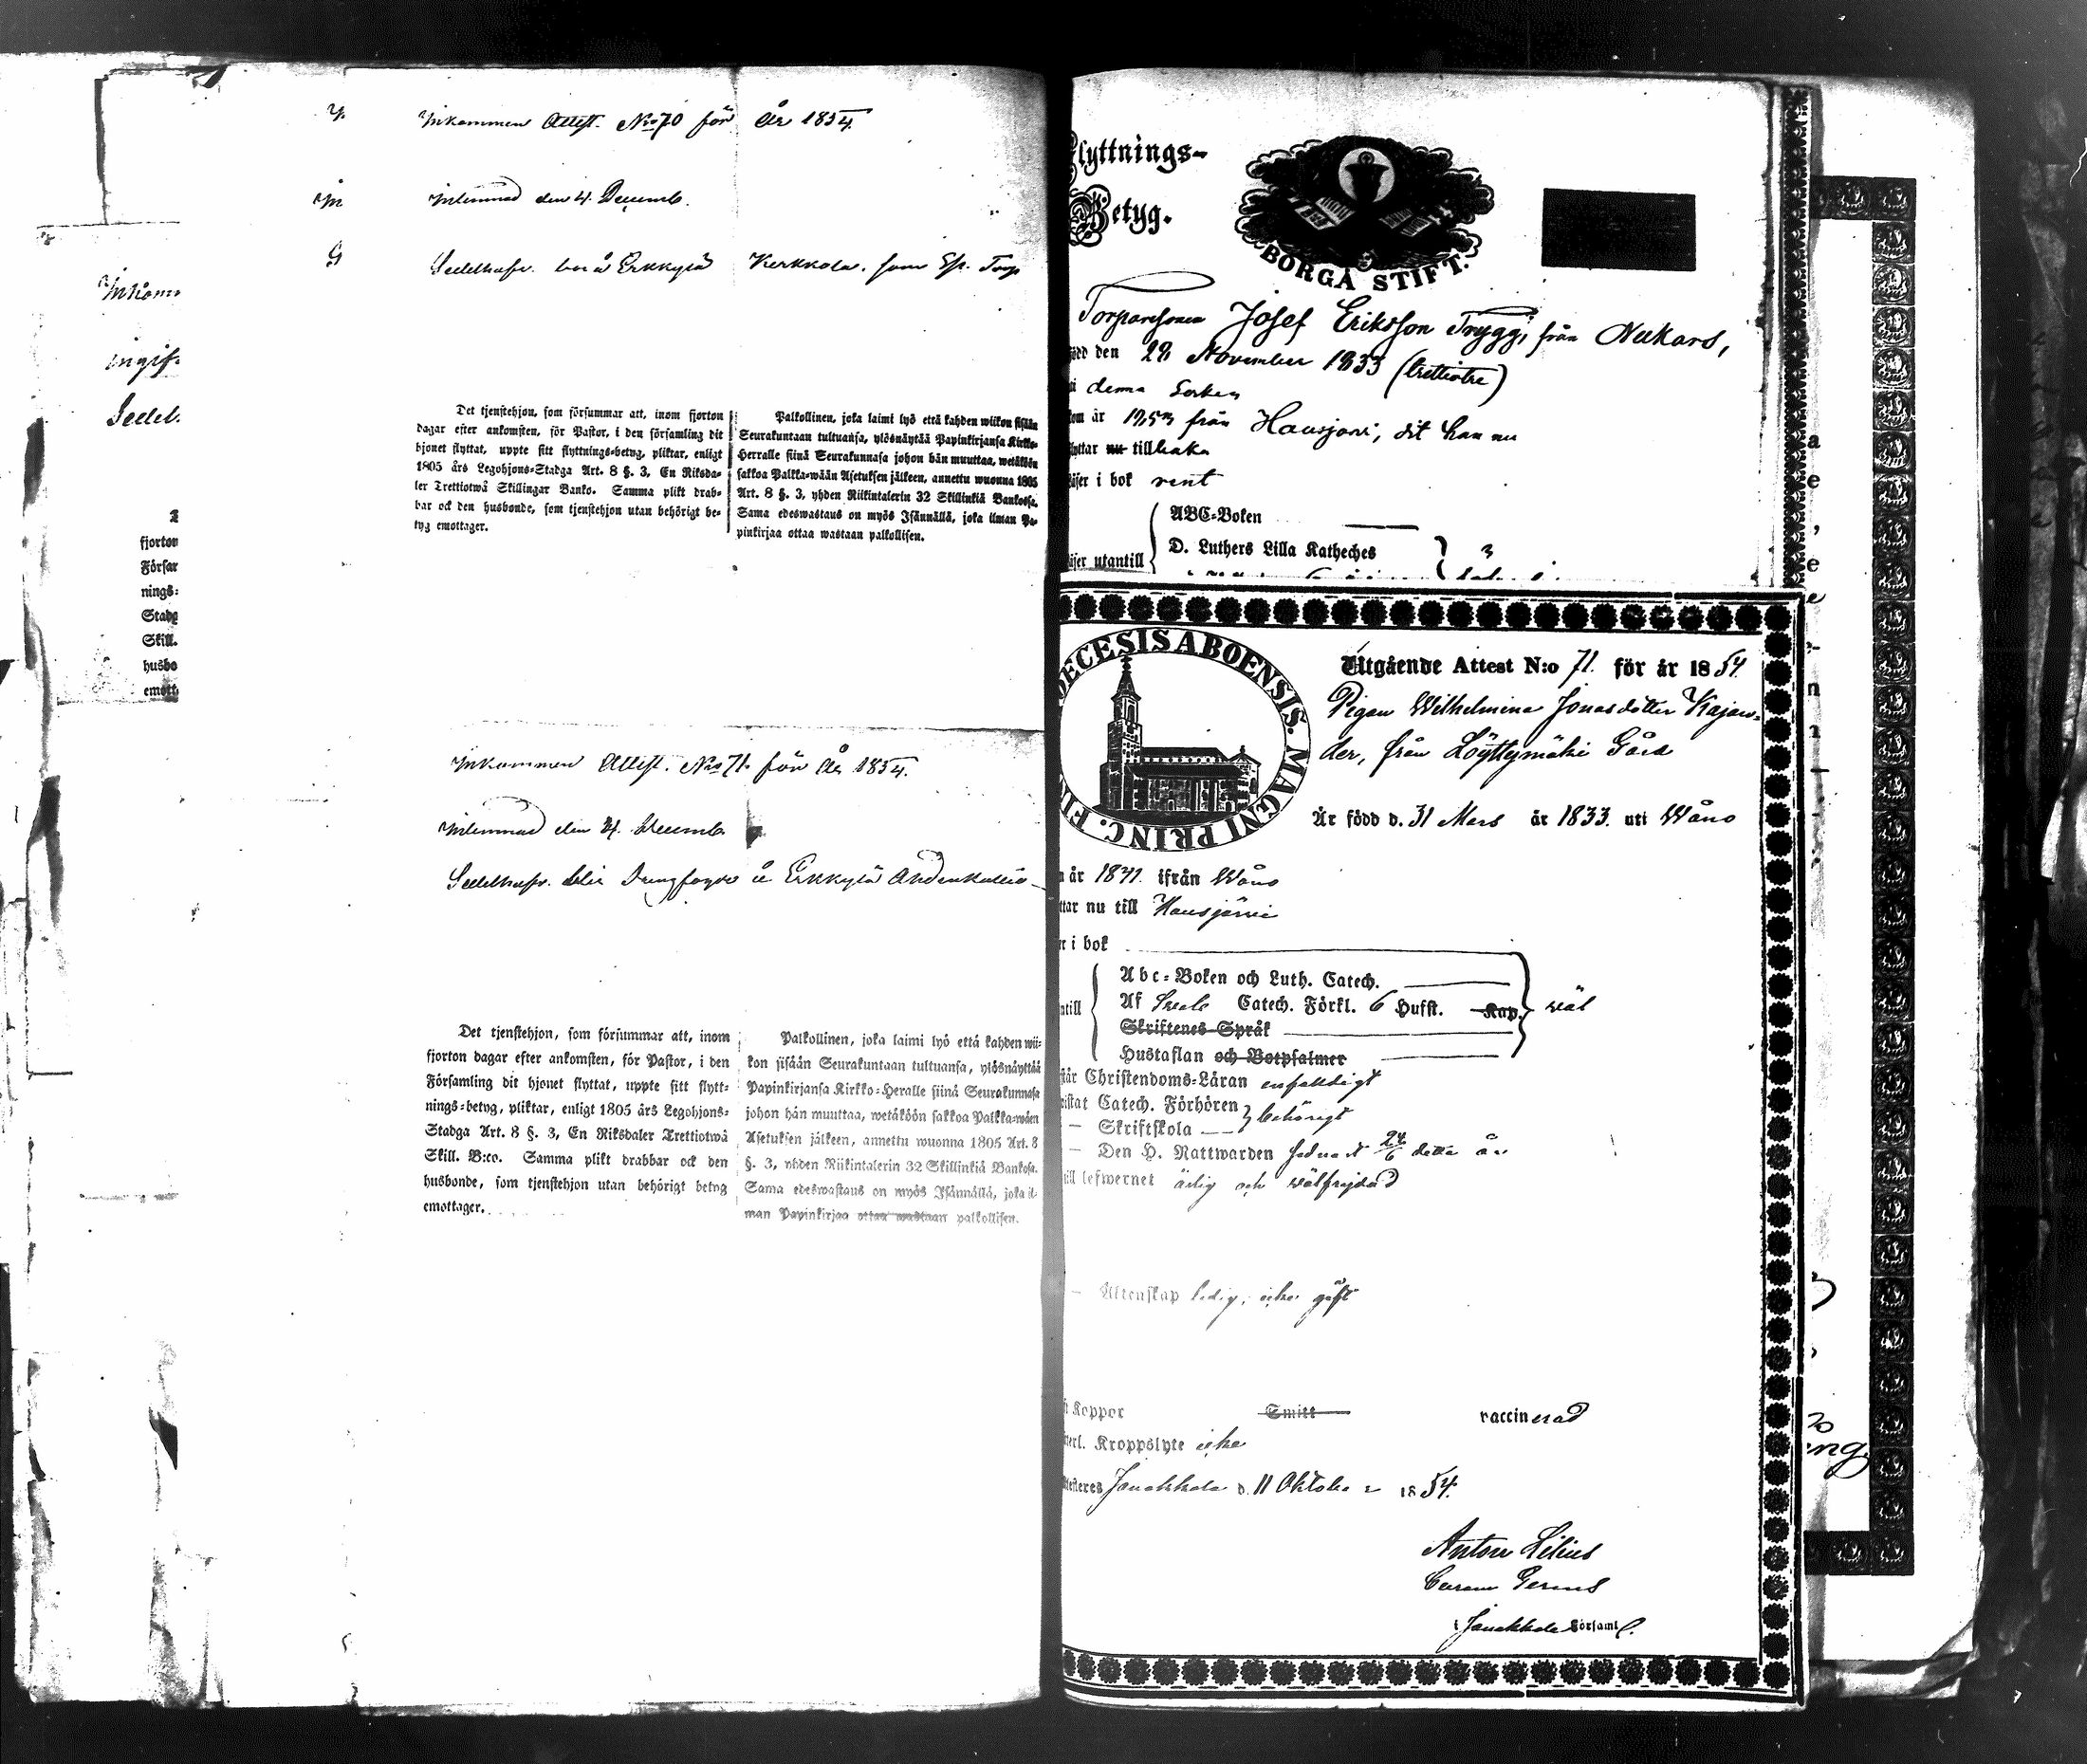 Inkommen Attest. No 70 för År 1854.
Inlemnad den 4. Decemb.
Sedelhafv. bor å Erkkylä Kerkkola, som
Det tjenstehjon, som försummar att, inom fjorton
dagar efter ankomsten, för Pastor, i den församling dit
hjonet flyttat, uppte sitt flyttnings-betyg, pliktar, enligt
1805 års Legohjons-Stadga Art. 8 §. 3, En Riksda-
ler Trettiotwå Skillingar Banko. Samma plikt drab-
bar ock den husbonde, som tjenstehjon utan behörigt be-
tyg emottager.
Palkollinen, joka laimi lyö että kahden wiikon sisään
Seurakuntaan tultuansa, ylösnäytää Papinkirjansa Kirkko-
Herralle siinä Seurakunnasa johon hän muuttaa, wetäköön
sakkoa Palkka-wään Asetuksen jälkeen, annettu wuonna 1805
Art. 8 §. 3, yhden Riikintalerin 32 Skillinkiä Bankossa.
Sama edeswastaus on myös Isännällä, joka ilman Pa-
pinkirjaa ottaa wastaan palkollisen.
Inkom
ingif.
Sedel.
fjorton
Försar
nings=
Stadg
Skill.
husbo
emott
Inkommen Attest. No 71. för År 1854.
Inlemnad den 4. Decemb.
Sedelhafv. blir å Erkkylä
Det tjenstehjon, som försummar att, inom
fjorton dagar efter ankomsten, för Pastor, i den
Församling dit hjonet flyttat, uppte sitt flytt=
nings=betyg, pliktar, enligt 1805 års Legohjons=
Stadga Art. 8 §. 3, En Riksdaler Trettiotwå
Skill. B:co. Samma plikt drabbar ock den
husbonde, som tjenstehjon utan behörigt betyg
emottager.
Palkollinen, joka laimi lyö että kahden wii=
kon sisään Seurakuntaan tultuansa, ylösnäyttää
Papinkirjansa Kirkko=Heralle siinä Seurakunnasa
johon hän muuttaa, wetäköön sakkoa Palkka=wäen
Asetuksen jälkeen, annettu wuonna 1805 Art. 8
§. 3, yhden Riikintalerin 32 Skillinkiä Bankosa.
Sama edeswastaus on myös Isännällä, joka il=
man Papinkirjaa ottaa wastaan palkollisen.
Flyttnings=
Betyg.
BORGÅ STIFT.
Torparsonen Josef Eriksson Trygg, från Nukars,
född den 28 November 1833 (trettiotre)
i denna Socken
kom år 1853 från Hausjärvi, dit han nu
flyttar nu tillbaka
läser i bok rent
ABC=Boken
D. Luthers Lilla Katheches
läser utantill
DIOECESIS ABOENSIS. MAGNI PRINC. FIN
Utgående Attest N:o 71. för år 1854.
Pigan Wilhelmina Jonasdotter Kajan=
der, från Löyttymäki Gård
Är född d. 31 Mars år 1833. uti Wåno
år 1841. ifrån Wåno
ttar nu till Hausjärvi
r i bok
Abc=Boken och Luth. Catech.
Af Sveb. Catech. Förkl. 6 Hufst. Kap. väl
Skriftenes Språk
Hustaflan och Botpsalmer
står Christendoms=Läran enfaldigt
vistat Catech. Förhören
— Skriftskola behörigt
— Den H. Nattwarden sednast 24/6 detta år
till lefwernet ärlig och välfrejdad
— Äktenskap ledig, icke gift
Koppor Smitt vaccinerad
terl. Kroppslyte icke
Attesteres Janakkala d. 11 Oktober 1854.
Anton Lilius
Curam Gerens
i Janakkala Församl.